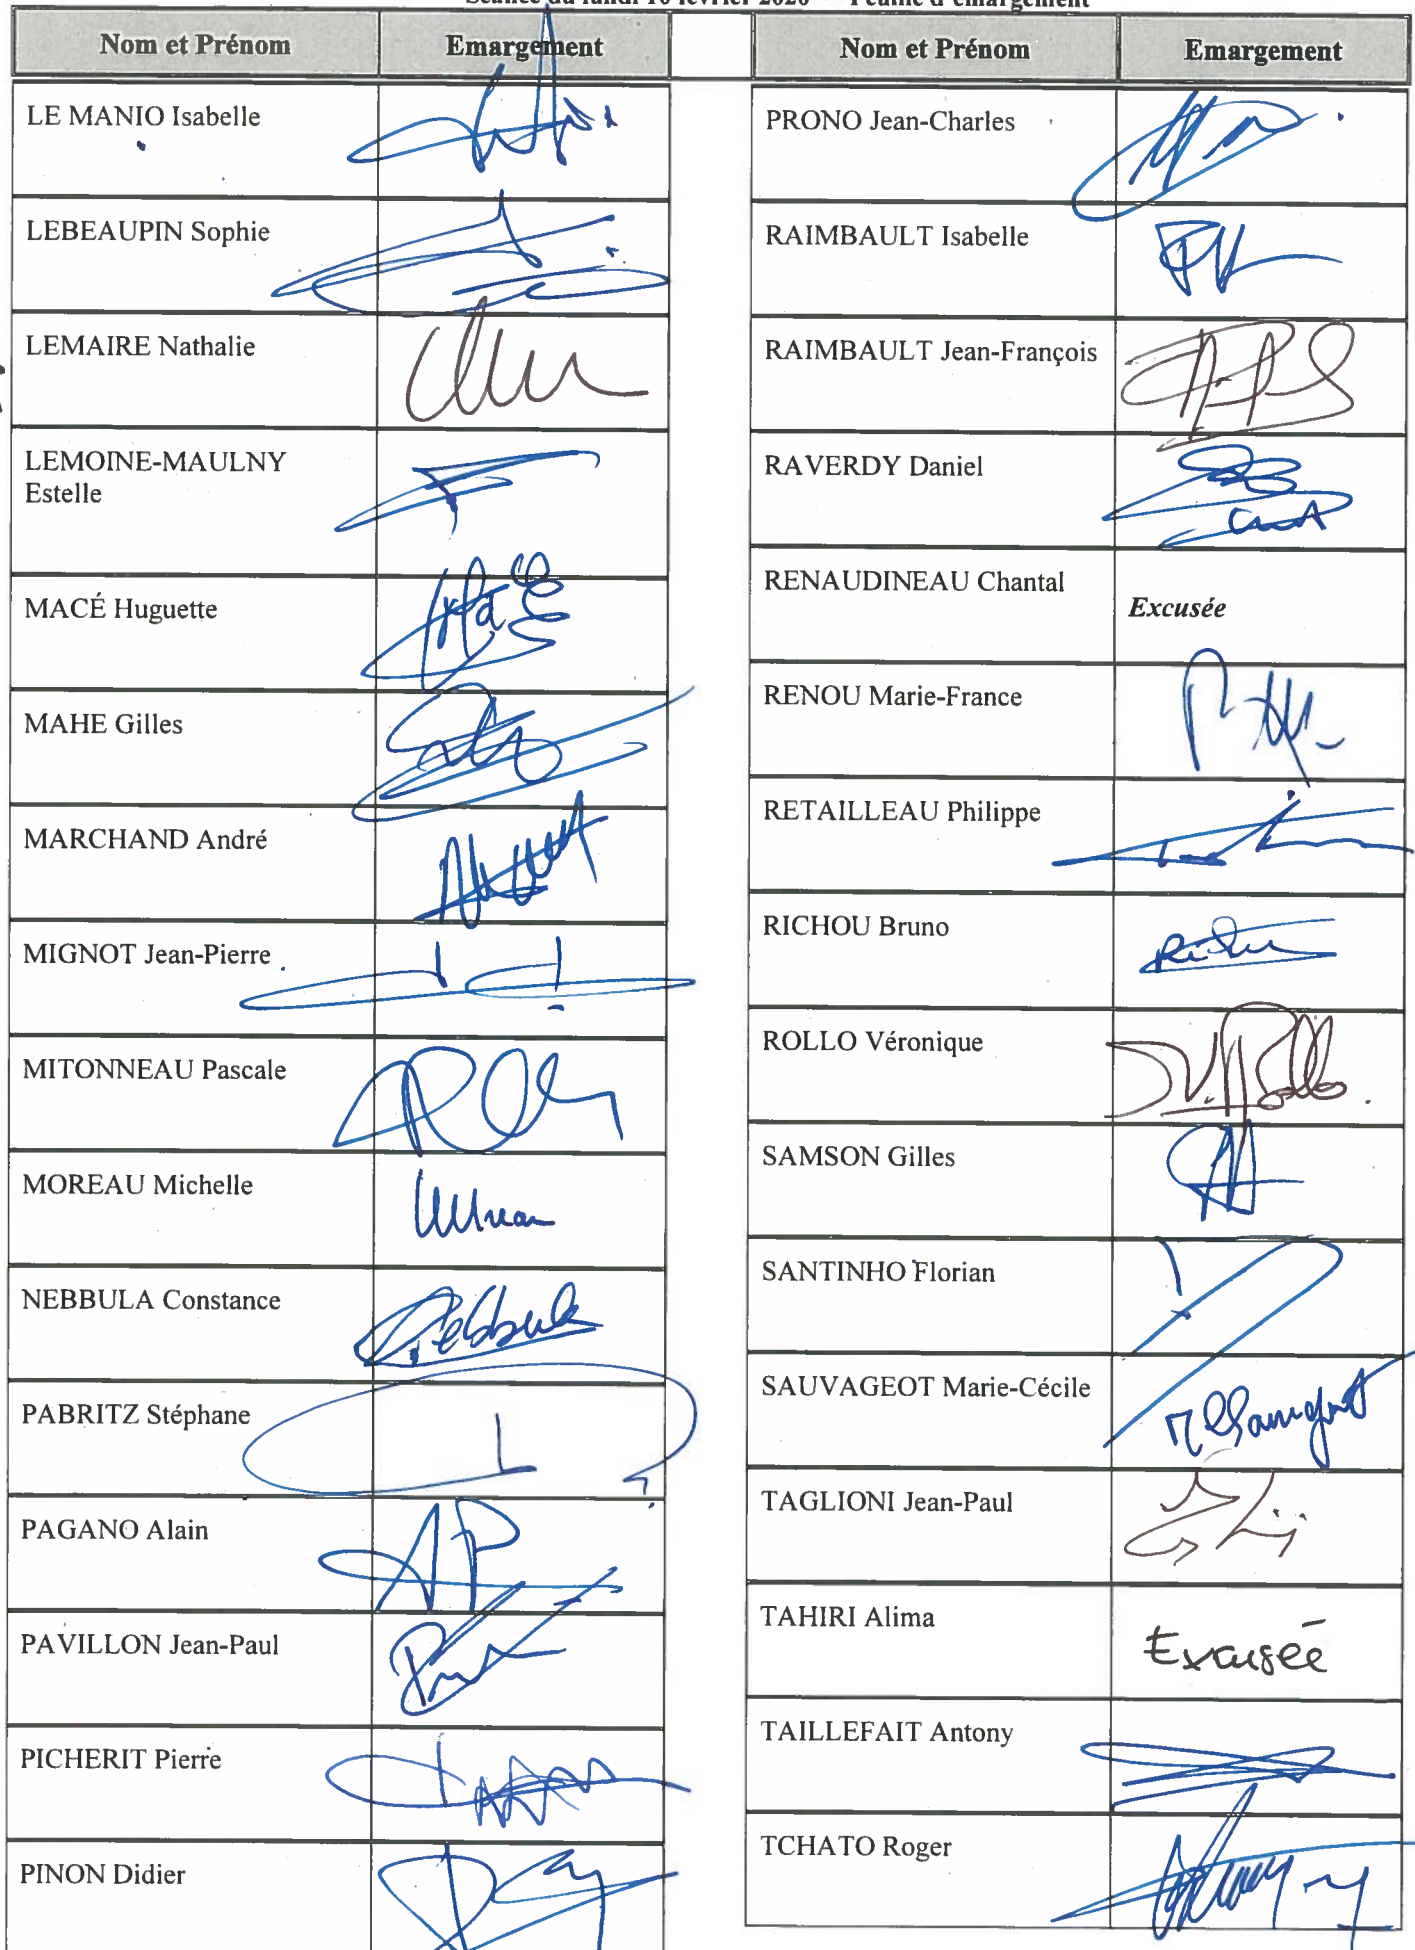 Séance du lundi 10 février 2020 — Feuille d'émargement
Nom et Prénom Emargement
LE MANIO Isabelle
LEBEAUPIN Sophie
LEMAIRE Nathalie
LEMOINE-MAULNY
Estelle
MACÉ Huguette
MAHE Gilles
MARCHAND André
MIGNOT Jean-Pierre
MITONNEAU Pascale
MOREAU Michelle
NEBBULA Constance
PABRITZ Stéphane
PAGANO Alain
PAVILLON Jean-Paul
PICHERIT Pierre
PINON Didier
Nom et Prénom Emargement
PRONO Jean-Charles
RAIMBAULT Isabelle
RAIMBAULT Jean-François
RAVERDY Daniel
RENAUDINEAU Chantal
Excusée
RENOU Marie-France
RETAILLEAU Philippe
RICHOU Bruno
ROLLO Véronique
SAMSON Gilles
SANTINHO Florian
SAUVAGEOT Marie-Cécile
TAGLIONI Jean-Paul
TAHIRI Alima
Excusée
TAILLEFAIT Antony
TCHATO Roger